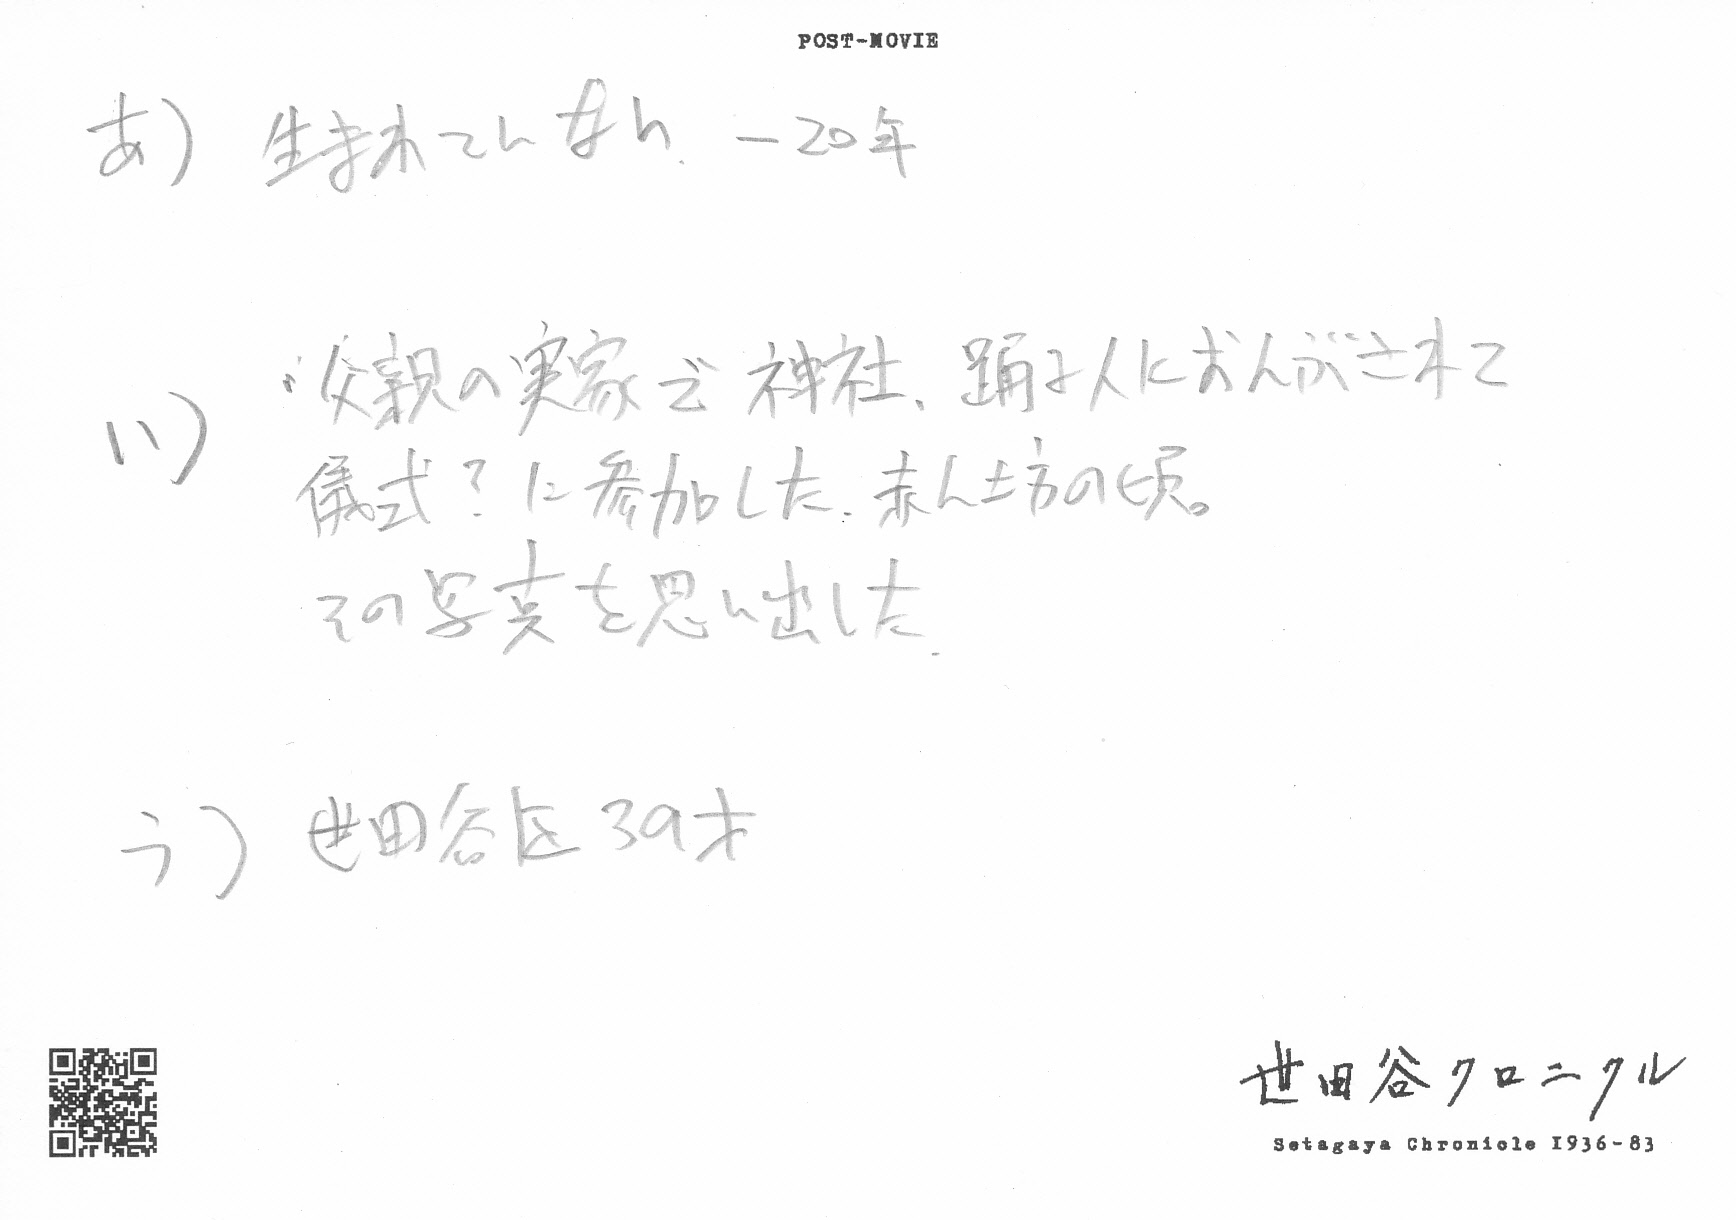 POST-MOVIE
あ) 生まれていない. −20年
い) ・父親の実家で神社、踊る人におんぶされて
儀式?に参加した. 赤ん坊の頃。
その写真を思い出した.
う) 世田谷区 39才
世田谷クロニクル
Setagaya Chronicle 1936-83